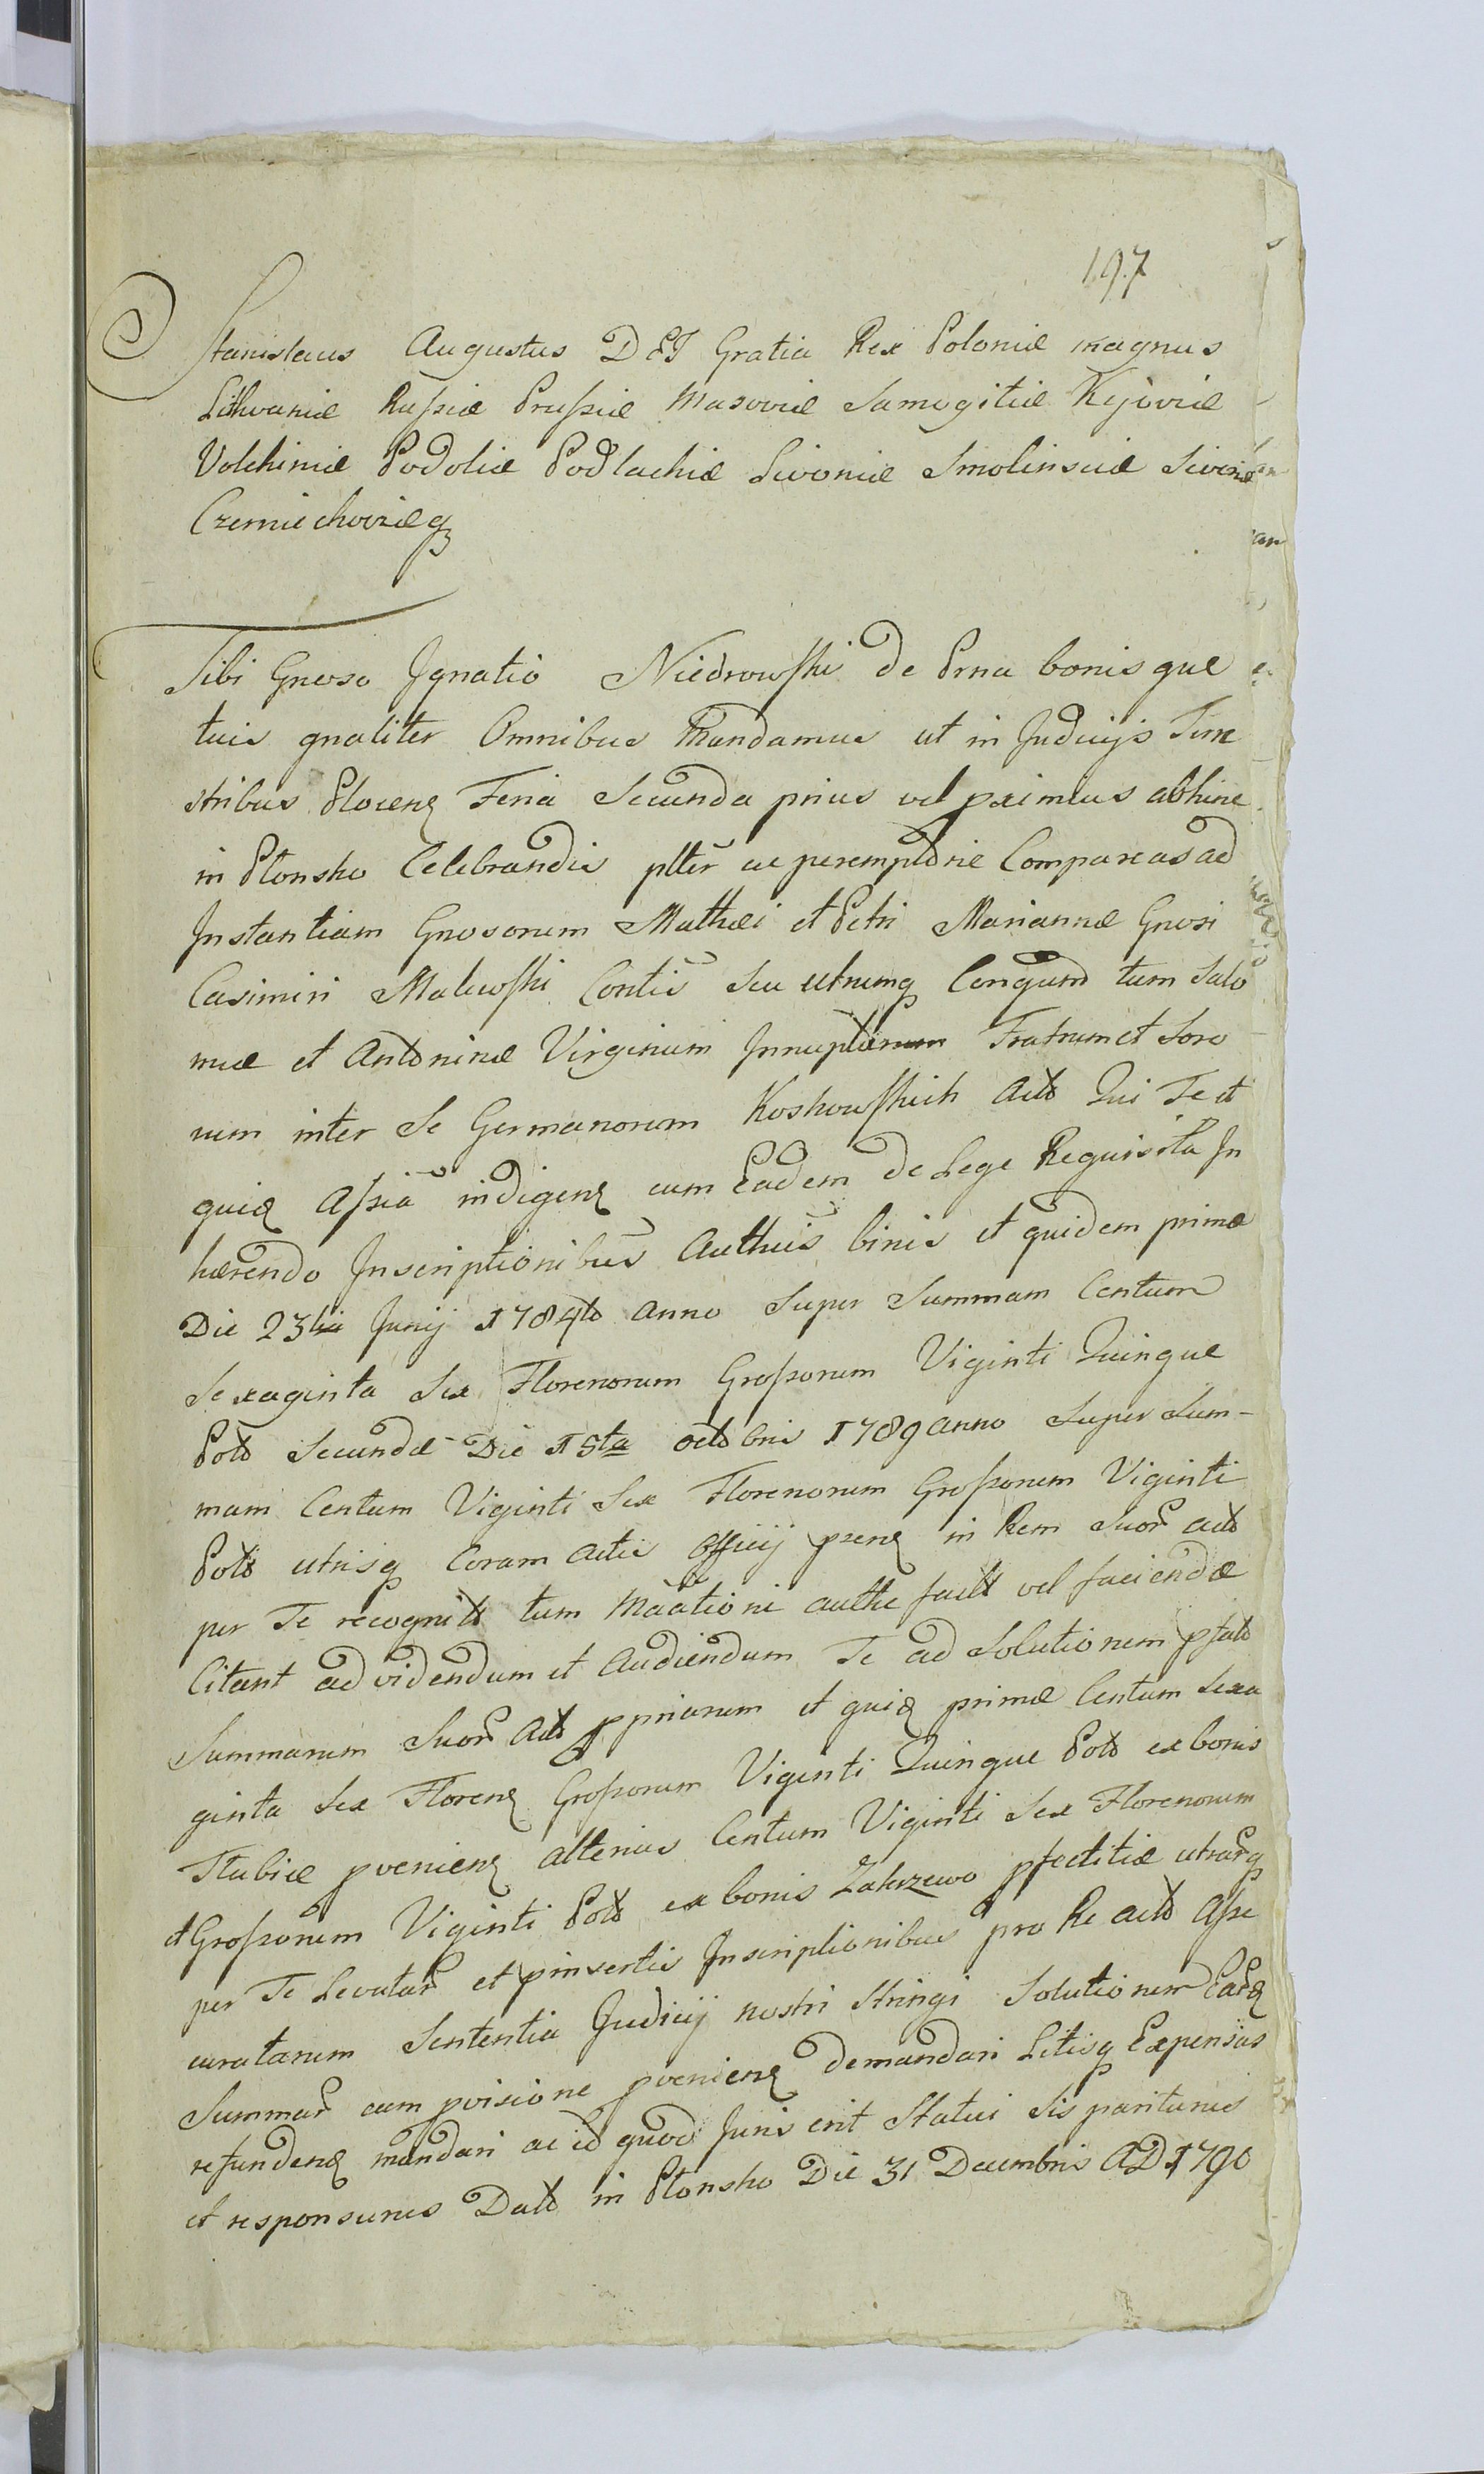 197
Stanislaus Augustus DEI Gratia Rex Poloniæ magnus
Lithvaniæ Russiæ Prussiæ Masoviæ Samogitiæ Kijoviæ
Volchiniæ Podoliæ Podlachiæ Livoniæ Smolinsciæ Siveriæ
Czerniechoviæq
Tibi Gneoso Jgnatio Niedrowski de Prna bonis que
tuis gnaliter Omnibus Mandamus ut in Judicijs Tirre
stribus Plocens Feria Secunda prius vel pximius abhinc
in Plonsko Celebrandis plter ac peremptorie Compareas ad
Jnstantiam Gnosorum Mathæi et Petri Mariannæ Gnosi
Casimiri Malewski Contis seu utrumq Congum tum Salo
meæ et Antoninæ Virginum Jnnuptarum Fratrum et Soro
rum inter Se Germanorum Koskowskich Acto Qui Te et
quid Assia indigens cum Eadem de Lege Requisita Jn
hærendo Jnscriptionibus Authcis binis et quidem prima
Die 23tia Junij 1784to anno Super Summam Centum
Sexaginta Sex Florenorum Grossorum Viginti Quinque
Polo Secunda Die 15ta octobris 1789 anno Super Sum-
mam Centum Viginti Sex Florenorum Grossorum Viginti
Polo utrisq Coram Actis Officij pzens in Rem Suor Acto
per Te recognito tum Mãationi authe facto vel faciendæ
Citant ad videndum et Audiendum Te ad Solutionem pfato
Summarum Suor Acto ppriarum et quid primæ Centum Sexa
ginta Sex Florens Grossorum Viginti Quinque Polo ex bonis
Strubiæ pveniens alterius Centum Viginti Sex Florenorum
et Grossorum Viginti Polo ex bonis Zakrzewo pfectitiæ utrarq
per Te Levatar et pinsertis Jnscriptionibus pro Re acto Asse
curatarum Sententia Judicij nostri Stringi Solutionem Eard
Summar cum pvisione pveniens demandari Litisq Expensas
refundens mandari ac id quod Juris erit Statui Sis pariturus
et responsurus Dato in Plonsko Die 31 Decembris AD 1790